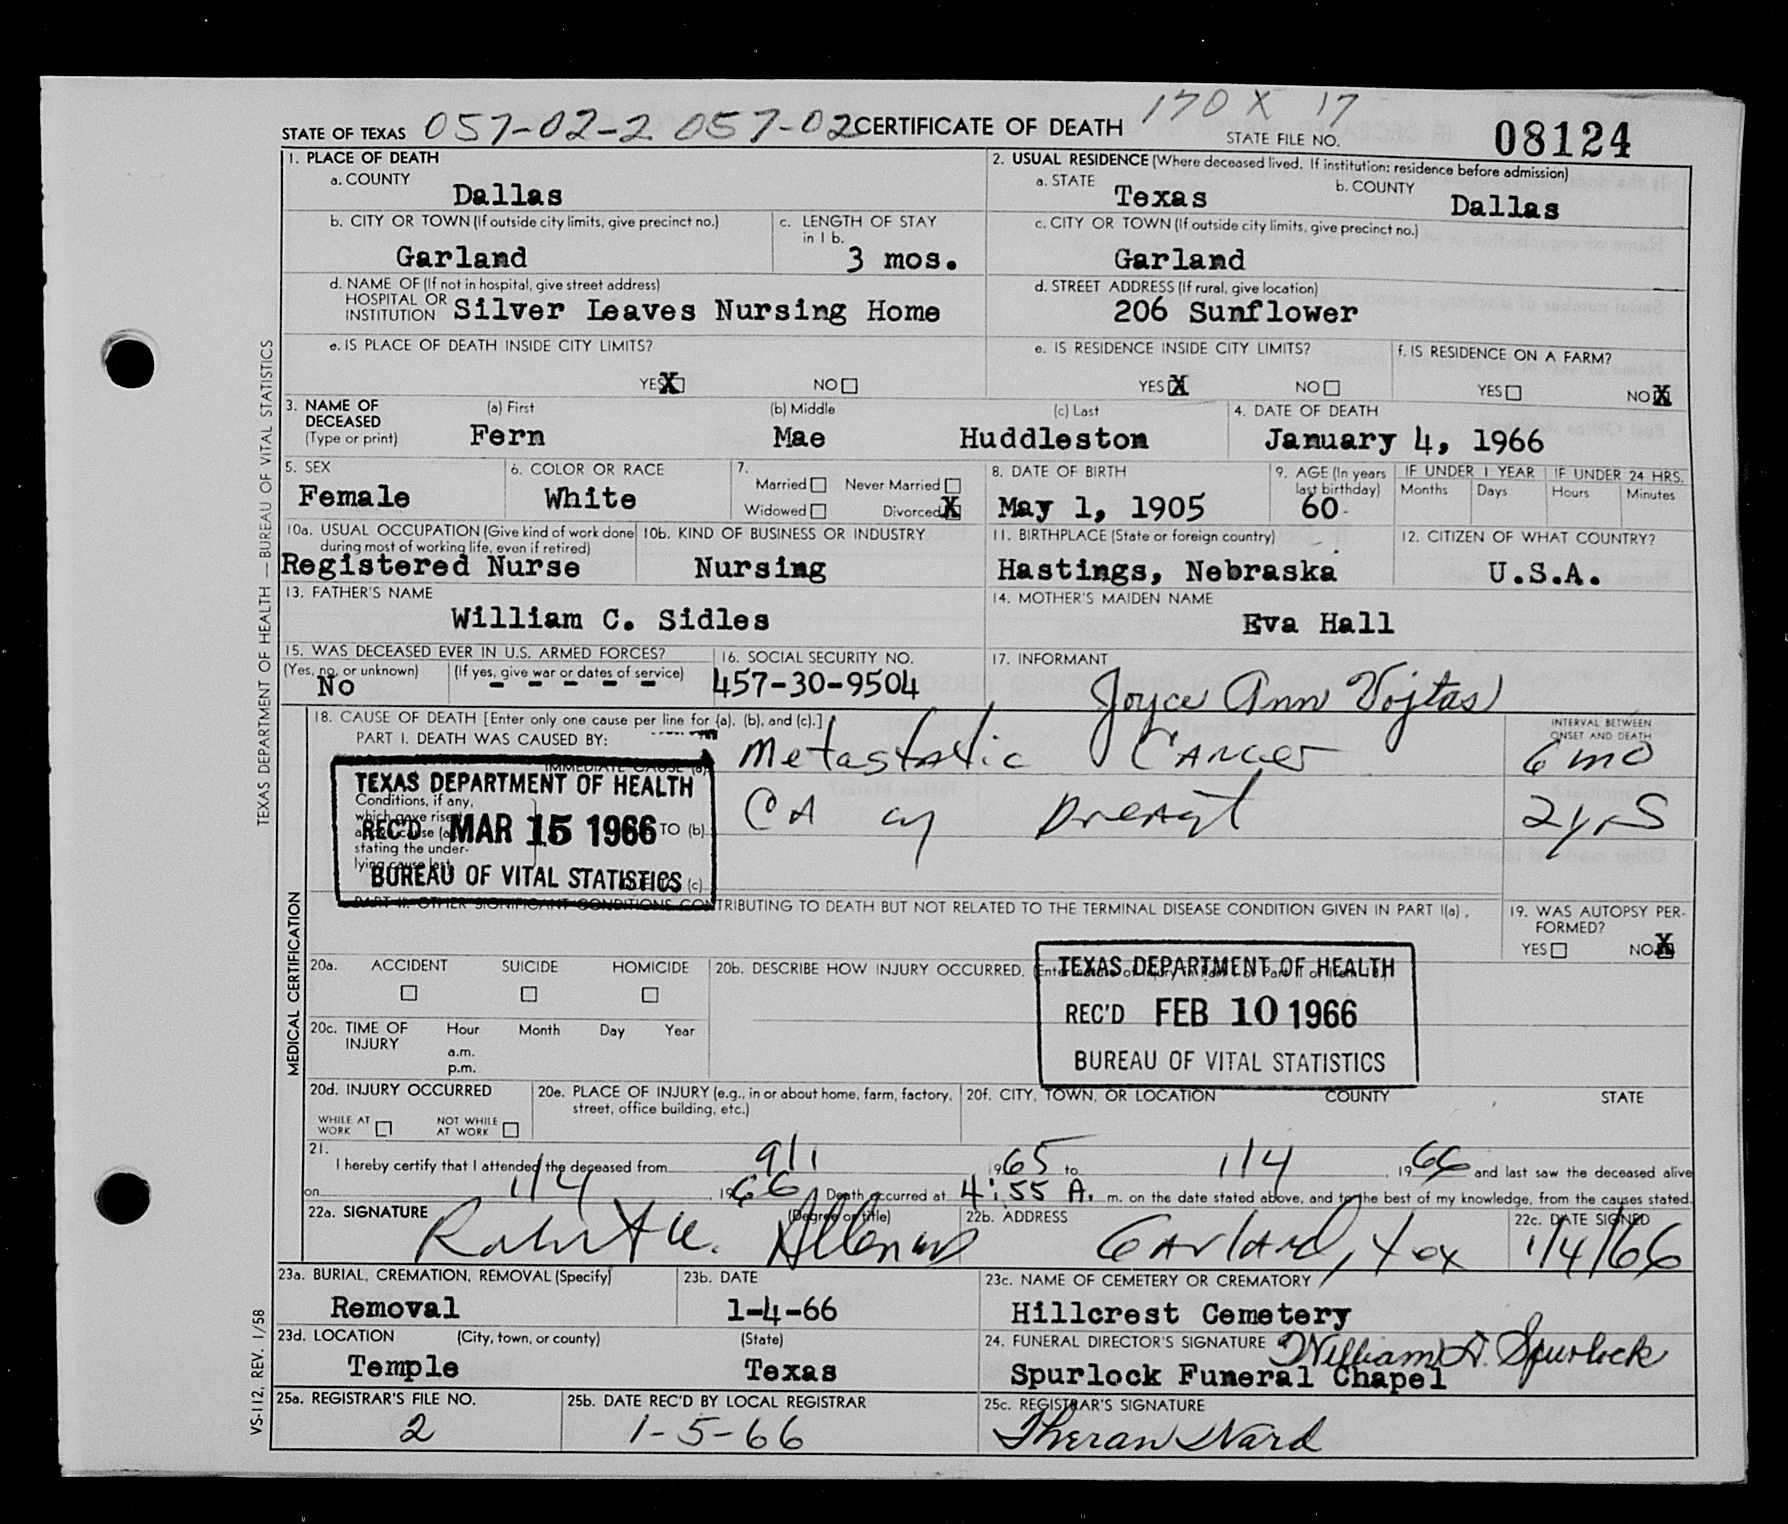 170 X 17
STATE OF TEXAS 057-02-2 057-02 CERTIFICATE OF DEATH STATE FILE NO. 08124
1. PLACE OF DEATH
a. COUNTY
Dallas
2. USUAL RESIDENCE (Where deceased lived. If institution: residence before admission)
a. STATE Texas b. COUNTY Dallas
b. CITY OR TOWN (If outside city limits, give precinct no.)
Garland
c. LENGTH OF STAY in 1 b.
3 mos.
c. CITY OR TOWN (If outside city limits, give precinct no.)
Garland
d. NAME OF (If not in hospital, give street address)
HOSPITAL OR
INSTITUTION Silver Leaves Nursing Home
d. STREET ADDRESS (If rural, give location)
206 Sunflower
e. IS PLACE OF DEATH INSIDE CITY LIMITS?
YES X NO
e. IS RESIDENCE INSIDE CITY LIMITS?
YES X NO
f. IS RESIDENCE ON A FARM?
YES NO X
3. NAME OF DECEASED (Type or print)
(a) First (b) Middle (c) Last
Fern Mae Huddleston
4. DATE OF DEATH
January 4, 1966
5. SEX
Female
6. COLOR OR RACE
White
7.
Married Never Married
Widowed Divorced X
8. DATE OF BIRTH
May 1, 1905
9. AGE (In years last birthday)
60
IF UNDER 1 YEAR IF UNDER 24 HRS.
Months Days Hours Minutes
10a. USUAL OCCUPATION (Give kind of work done during most of working life, even if retired)
Registered Nurse
10b. KIND OF BUSINESS OR INDUSTRY
Nursing
11. BIRTHPLACE (State or foreign country)
Hastings, Nebraska
12. CITIZEN OF WHAT COUNTRY?
U.S.A.
13. FATHER'S NAME
William C. Sidles
14. MOTHER'S MAIDEN NAME
Eva Hall
15. WAS DECEASED EVER IN U.S. ARMED FORCES?
(Yes, no, or unknown) (If yes, give war or dates of service)
No - - - - -
16. SOCIAL SECURITY NO.
457-30-9504
17. INFORMANT
Joyce Ann Vojtas
18. CAUSE OF DEATH [Enter only one cause per line for (a), (b), and (c).]
PART I. DEATH WAS CAUSED BY:
IMMEDIATE CAUSE (a) Metastatic Cancer
INTERVAL BETWEEN ONSET AND DEATH
6 mo
Conditions, if any,
which gave rise
stating the under-
lying cause last.
TO (b) CA of breast 2 yrs
(c)
TEXAS DEPARTMENT OF HEALTH
REC'D MAR 15 1966
BUREAU OF VITAL STATISTICS
PART II. OTHER SIGNIFICANT CONDITIONS CONTRIBUTING TO DEATH BUT NOT RELATED TO THE TERMINAL DISEASE CONDITION GIVEN IN PART I(a).
19. WAS AUTOPSY PER-
FORMED?
YES NO X
20a. ACCIDENT SUICIDE HOMICIDE
20b. DESCRIBE HOW INJURY OCCURRED.
TEXAS DEPARTMENT OF HEALTH
REC'D FEB 10 1966
BUREAU OF VITAL STATISTICS
20c. TIME OF INJURY Hour Month Day Year
a.m.
p.m.
20d. INJURY OCCURRED
WHILE AT WORK NOT WHILE AT WORK
20e. PLACE OF INJURY (e.g., in or about home, farm, factory, street, office building, etc.)
20f. CITY, TOWN, OR LOCATION COUNTY STATE
21.
I hereby certify that I attended the deceased from 9/1 1965 to 1/4, 1966 and last saw the deceased alive
on 1/4, 1966. Death occurred at 4:55 A. m. on the date stated above, and to the best of my knowledge, from the causes stated.
22a. SIGNATURE (Degree or title)
22b. ADDRESS
Garland, Tex
22c. DATE SIGNED
1/4/66
23a. BURIAL, CREMATION, REMOVAL (Specify)
Removal
23b. DATE
1-4-66
23c. NAME OF CEMETERY OR CREMATORY
Hillcrest Cemetery
23d. LOCATION (City, town, or county) (State)
Temple Texas
24. FUNERAL DIRECTOR'S SIGNATURE William D. Spurlock
Spurlock Funeral Chapel
25a. REGISTRAR'S FILE NO.
2
25b. DATE REC'D BY LOCAL REGISTRAR
1-5-66
25c. REGISTRAR'S SIGNATURE
Theran Ward
TEXAS DEPARTMENT OF HEALTH — BUREAU OF VITAL STATISTICS
MEDICAL CERTIFICATION
VS-112, REV. 1/58